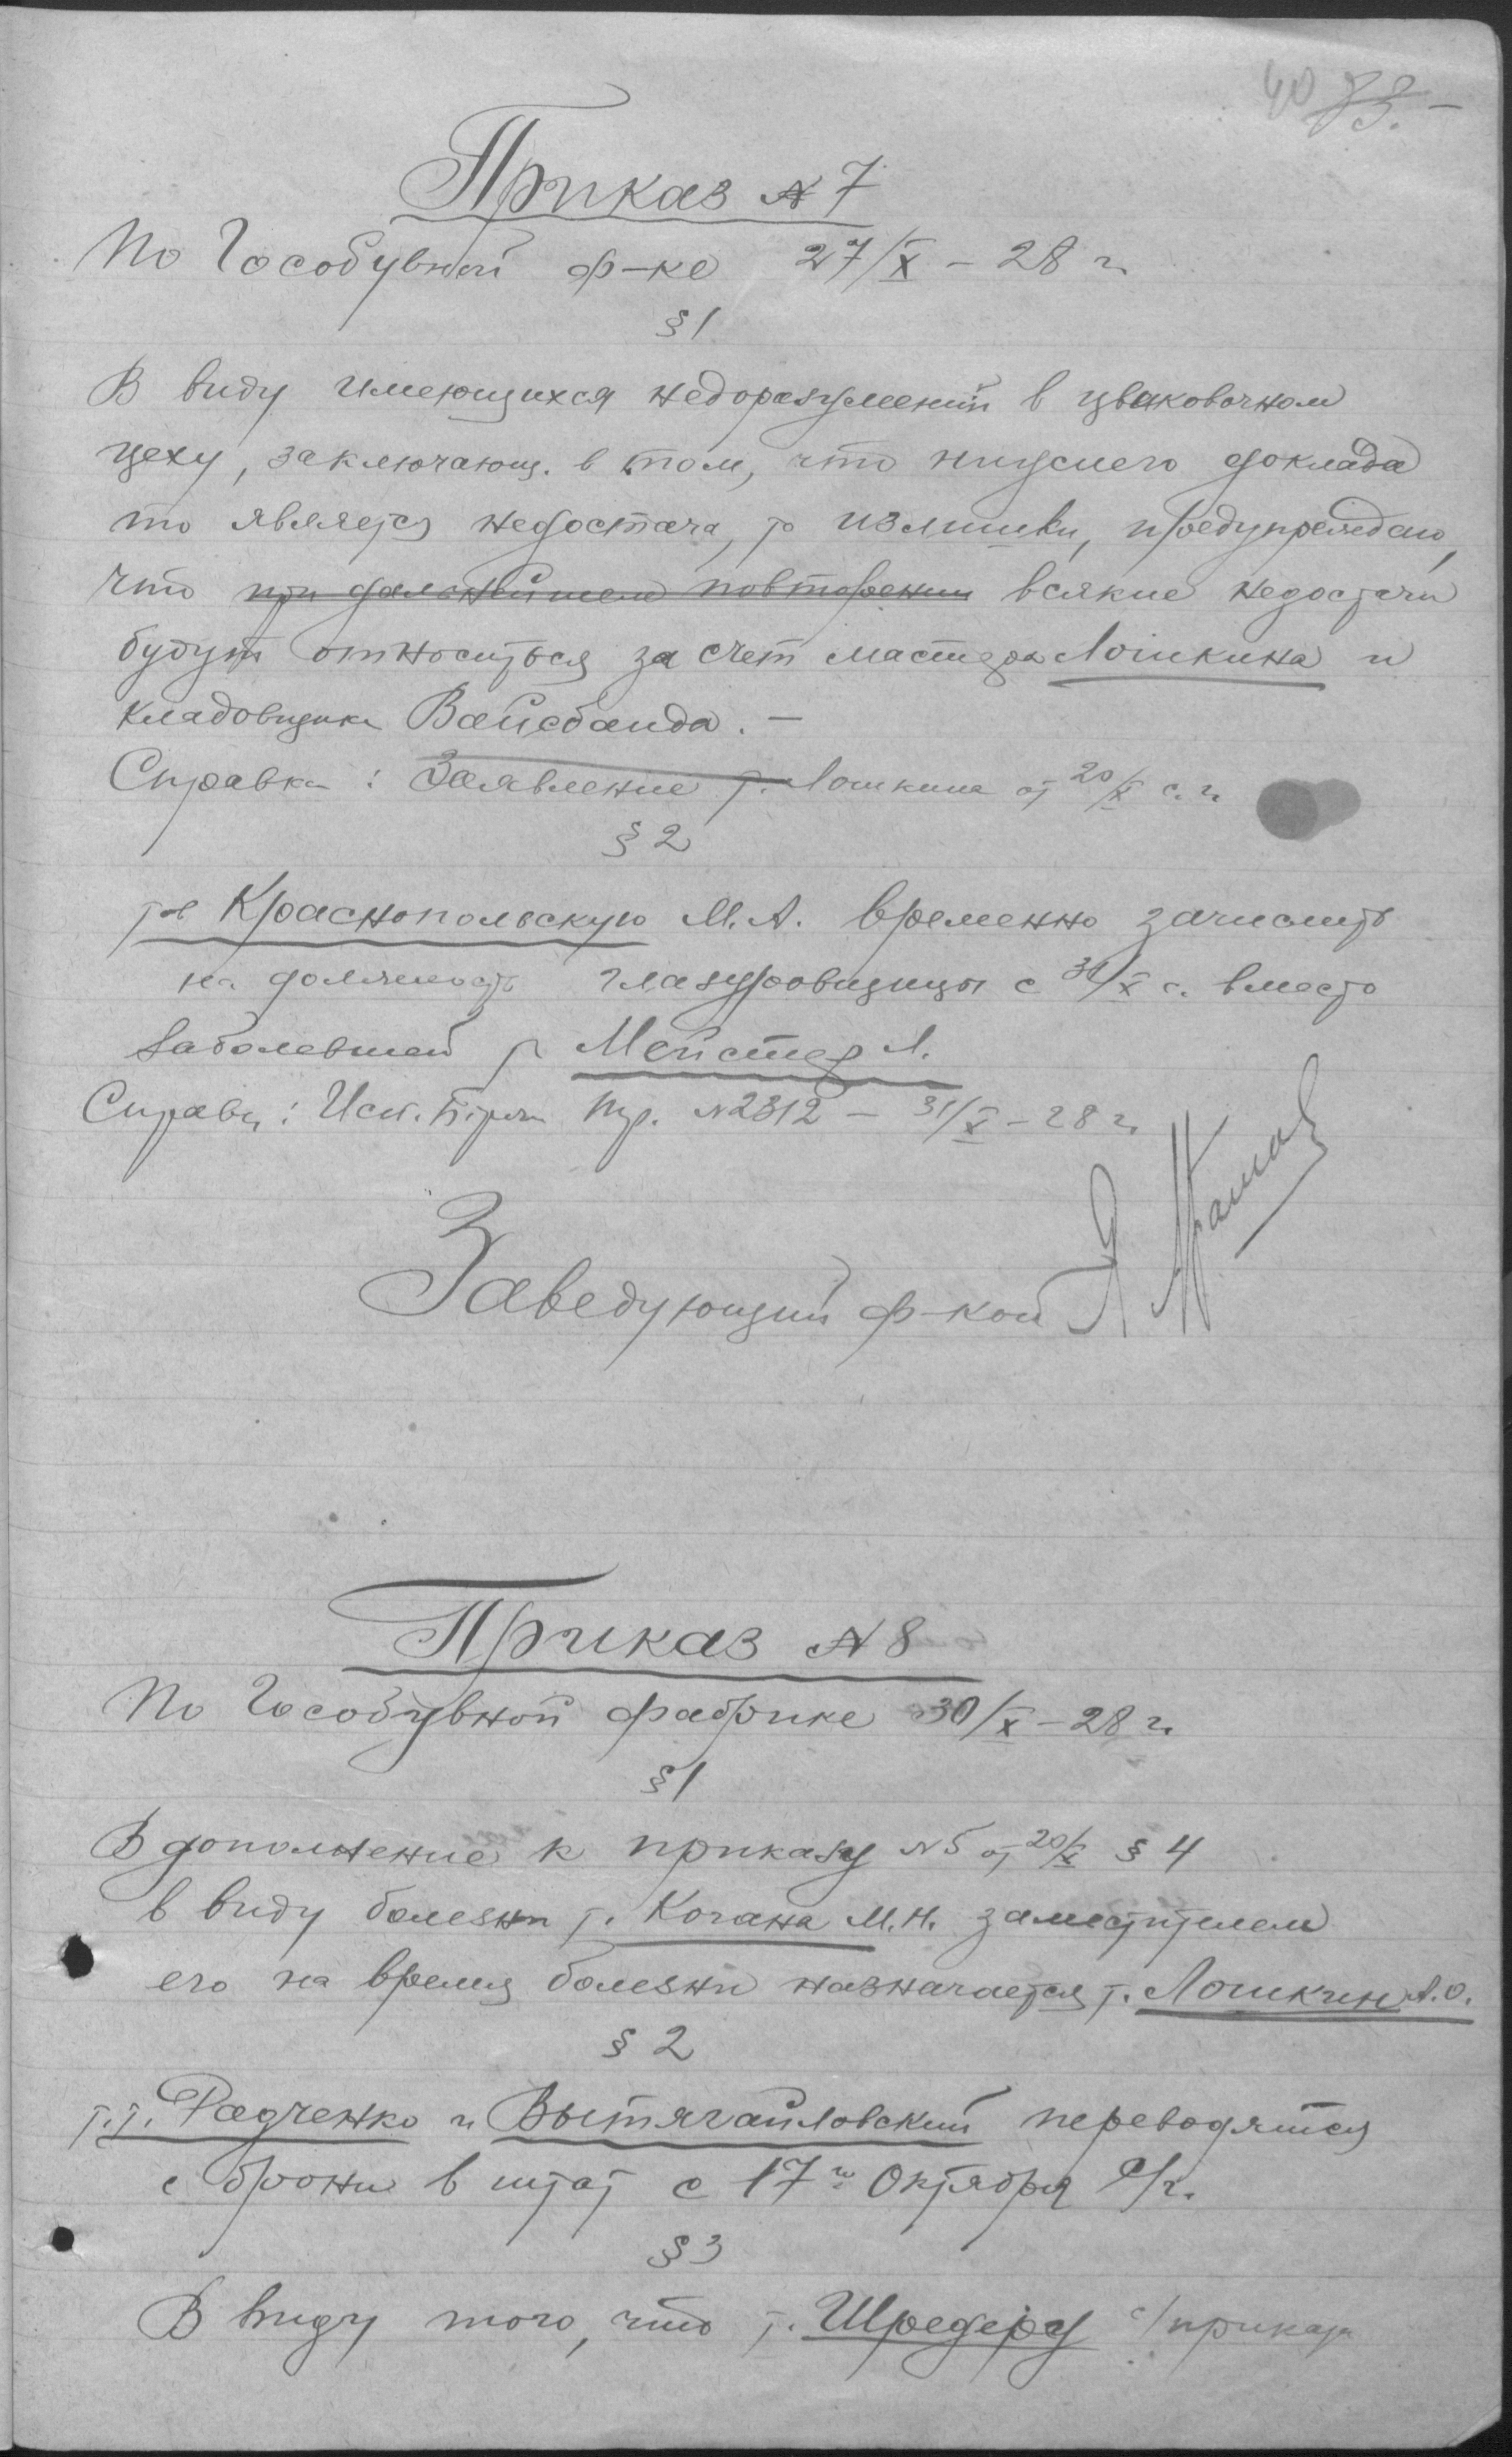 40 33.-
Приказ № 7
По Гособувной ф-ке 27/X - 28 г.
§ 1
В виду имеющихся недоразумений в цваковочном
цеху, заключающ. в том, что доклада
то является недостача, то излишки, предупреждаю,
что при дальнейшем повторении всякие недостачи
будут относиться за счет мастера Лошкина и
кладовщика Вайсбанда. -
Справка: Заявление т. Лошкина от 20/X с. г.
§ 2
т. Краснопольскую М. А. временно зачислить
на должность глазуровщицы с 31/X с. вместо
заболевшей т. Мейстер Л.
Справк: Исх. Биржи тр. № 2312 - 31/X - 28 г.
Заведующий ф-кой
Приказ № 8
По Гособувной фабрике 30/X - 28 г.
§ 1
В дополнение к приказу № 5 от 20/X § 4
в виду болезни т. Когана М. Н. заместителем
его на время болезни назначается т. Лошкин А. О.
§ 2
т. т. Радченко и Вытягайловский переводятся
с брони в штат с 17го Октября с/г.
§ 3
В виду того, что т. Шредеру с/приказ